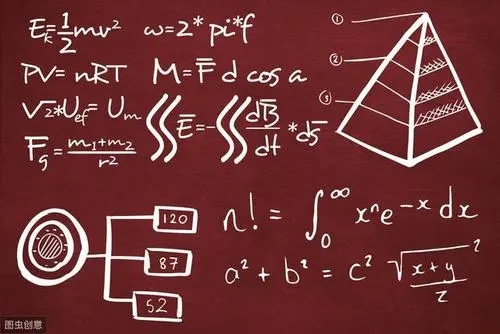 Eₖ = 1/2 mv²   ω = 2* pi*f
PV = nRT   M = F̅ d cos a
√2*U_ef = U_m   ∫∫ E̅ = -∫∫ dB̅/dt * ds̅
F̅_g = m₁+m₂/r²
①
②
③
120
87
52
n! = ∫₀^∞ xⁿe⁻ˣ dx
a² + b² = c²   √(x+y)/z ²
图虫创意